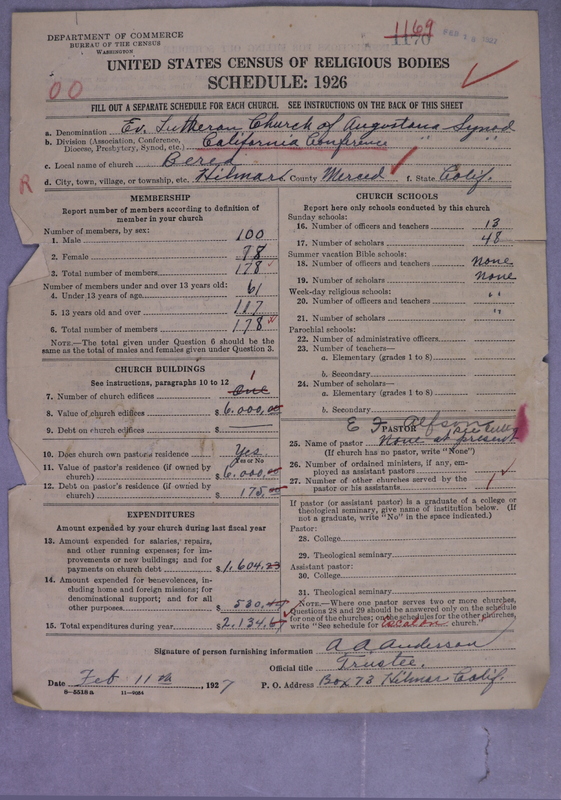 DEPARTMENT OF COMMERCE
BUREAU OF THE CENSUS
WASHINGTON
1169
1170
FEB 1927
UNITED STATES CENSUS OF RELIGIOUS BODIES
SCHEDULE: 1926
00
FILL OUT A SEPARATE SCHEDULE FOR EACH CHURCH. SEE INSTRUCTIONS ON THE BACK OF THIS SHEET
a. Denomination Ev. Lutheran Church of Augustana Synod
b. Division (Association, Conference, Diocese, Presbytery, Synod, etc.) California Conference " "
c. Local name of church Berea
R
d. City, town, village, or township, etc. Hilmar County Merced f. State Calif.
MEMBERSHIP
Report number of members according to definition of
member in your church
Number of members, by sex:
1. Male 100
2. Female 78
3. Total number of members 178
Number of members under and over 13 years old:
4. Under 13 years of age 61
5. 13 years old and over 117
6. Total number of members 178
NOTE.—The total given under Question 6 should be the
same as the total of males and females given under Question 3.
CHURCH BUILDINGS
See instructions, paragraphs 10 to 12
7. Number of church edifices One 1
8. Value of church edifices $ 6,000.00
9. Debt on church edifices $
10. Does church own pastor's residence Yes
Yes or No
11. Value of pastor's residence (if owned by
church) $ 6,000.00
12. Debt on pastor's residence (if owned by
church) $ 175.00
EXPENDITURES
Amount expended by your church during last fiscal year
13. Amount expended for salaries, repairs,
and other running expenses; for im-
provements or new buildings; and for
payments on church debt $ 1,604.23
14. Amount expended for benevolences, in-
cluding home and foreign missions; for
denominational support; and for all
other purposes $ 530.
15. Total expenditures during year $ 2,134.
CHURCH SCHOOLS
Report here only schools conducted by this church
Sunday schools:
16. Number of officers and teachers 13
17. Number of scholars 48
Summer vacation Bible schools:
18. Number of officers and teachers None
19. Number of scholars None
Week-day religious schools:
20. Number of officers and teachers "
21. Number of scholars "
Parochial schools:
22. Number of administrative officers
23. Number of teachers—
a. Elementary (grades 1 to 8)
b. Secondary
24. Number of scholars—
a. Elementary (grades 1 to 8)
b. Secondary
PASTOR
25. Name of pastor None at present
(If church has no pastor, write "None")
26. Number of ordained ministers, if any, em-
ployed as assistant pastors
27. Number of other churches served by the
pastor or his assistants 1
If pastor (or assistant pastor) is a graduate of a college or
theological seminary, give name of institution below. (If
not a graduate, write "No" in the space indicated.)
Pastor:
28. College
29. Theological seminary
Assistant pastor:
30. College
31. Theological seminary
NOTE.—Where one pastor serves two or more churches,
Questions 28 and 29 should be answered only on the schedule
for one of the churches; on the schedules for the other churches,
write "See schedule for Escalon church."
Signature of person furnishing information A A Anderson
Official title Trustee.
Date Feb 11 th, 1927
P. O. Address Box 73 Hilmar Calif.
6–5518a 11–9054